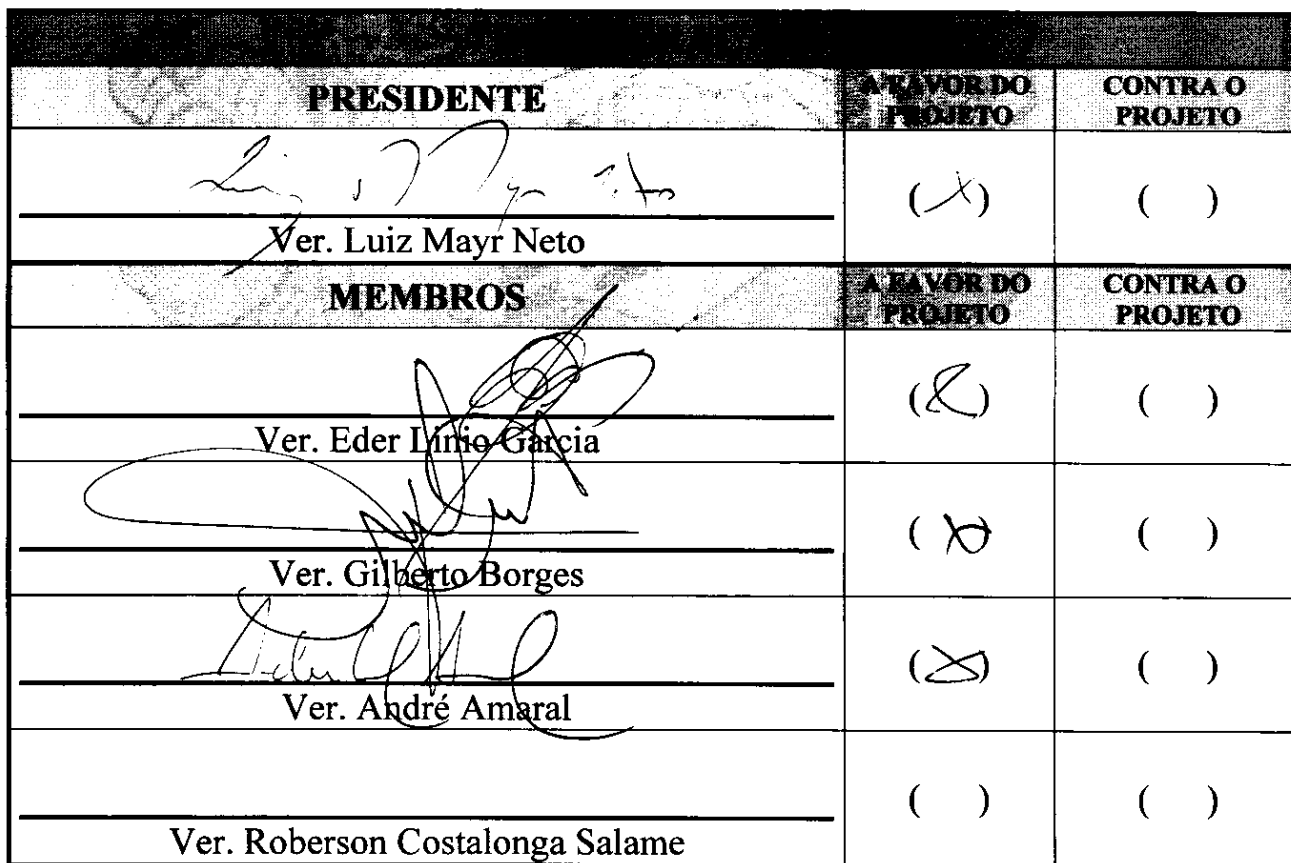 PRESIDENTE
A FAVOR DO PROJETO
CONTRA O PROJETO
(X)
( )
Ver. Luiz Mayr Neto
MEMBROS
A FAVOR DO PROJETO
CONTRA O PROJETO
(X)
( )
Ver. Eder Linio Garcia
(X)
( )
Ver. Gilberto Borges
(X)
( )
Ver. André Amaral
( )
( )
Ver. Roberson Costalonga Salame